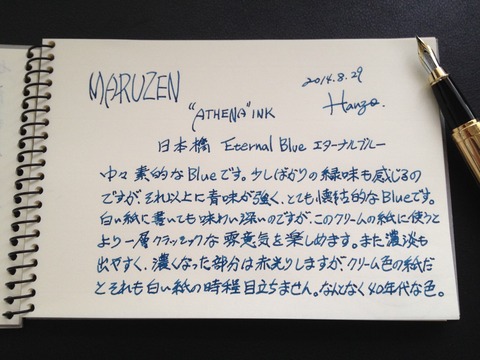 MARUZEN
2014.8.29
"ATHENA" INK
Hanzo.
日本橋 Eternal Blue エターナルブルー
中々素的なBlueです。少しばかりの緑味も感じるの
ですが、それ以上に青味が強く、とても懐古的なBlueです。
白い紙に書いても味わい深いのですが、このクリームの紙に使うと
より一層クラッシックな雰意気を楽しめます。また濃淡も
出やすく、濃くなった部分は赤光りしますが、クリーム色の紙だ
とそれも白い紙の時程目立ちません。なんとなく40年代な色。